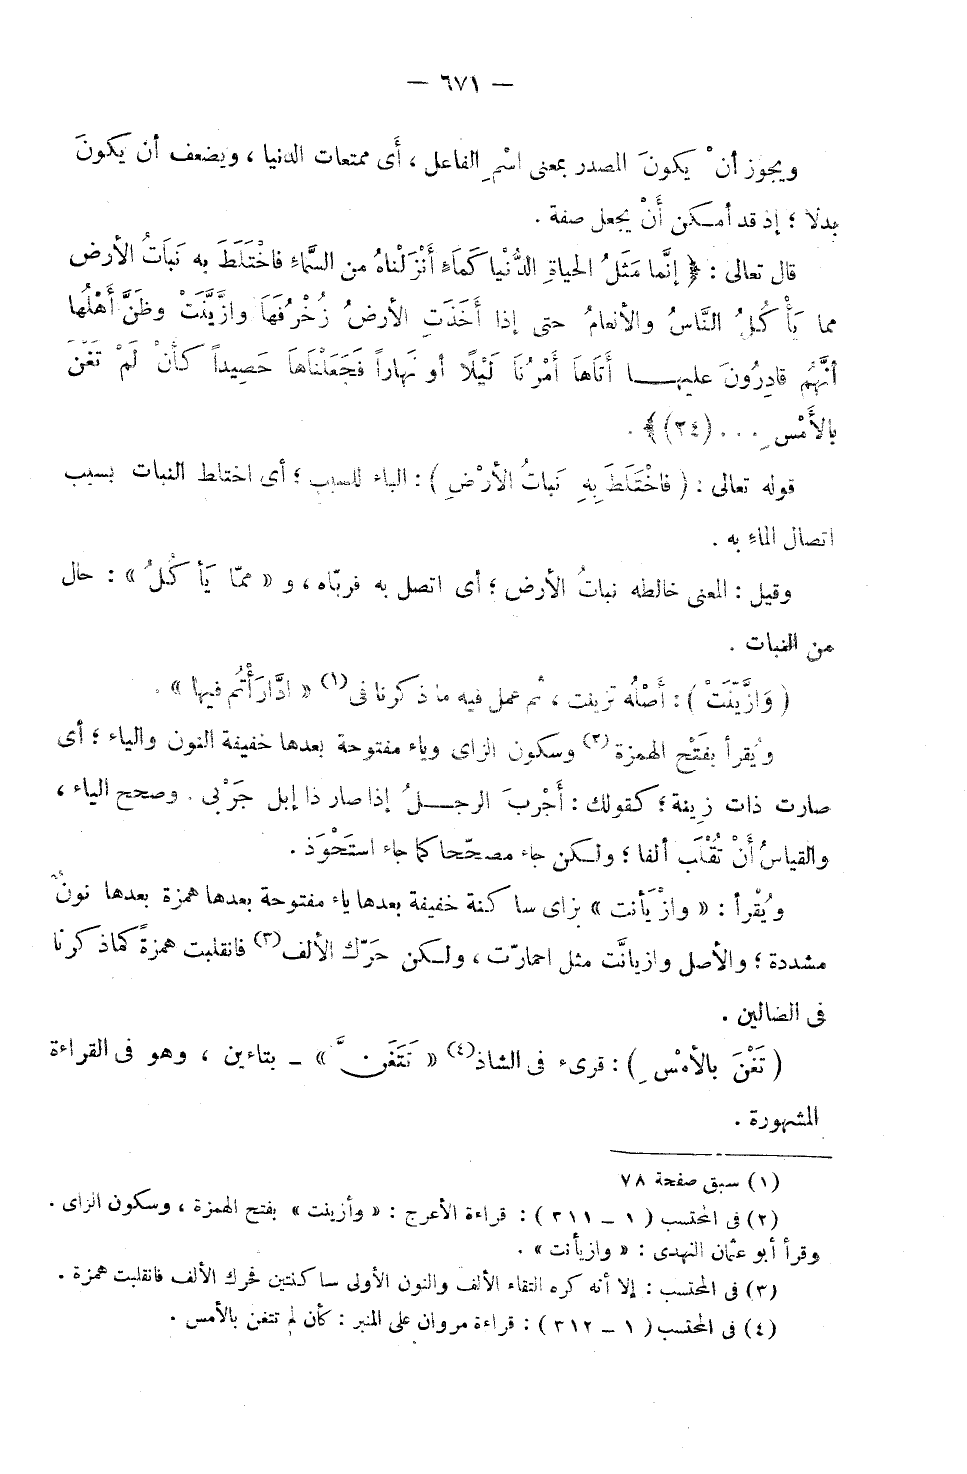 — ٦٧١ —
ويجوز أنْ يكونَ المصدر بمعنى اسْمِ الفاعل ، أَى ممتعات الدنيا ، ويضعف أن يكونَ
بدلا ؛ إذ قد أمكن أَنْ يجعل صفة .
قال تعالى : ﴿ إنَّما مَثَلُ الحياةِ الدُّنْيا كَمَاءٍ أَنْزَلْناهُ من السَّماءِ فَاخْتَلَطَ به نَبَاتُ الأرض
مما يَأْكُلُ النَّاسُ والأنعامُ حتى إذا أَخَذَتِ الأرضُ زُخْرُفَهَا وازَّيَّنَتْ وظَنَّ أَهْلُها
أنَّهُم قادِرُونَ عليها أَتَاهَا أَمْرُنَا لَيْلًا أو نهاراً فَجَعَلْنَاهَا حَصِيداً كأَنْ لَمْ تَغْنَ
بالأَمْسِ ... (٢٤)﴾ .
قوله تعالى : ( فَاخْتَلَطَ بِهِ نَبَاتُ الأرْضِ ) : الباء للسبب ؛ أى اختلط النبات بسبب
اتصال الماء به .
وقيل : المعنى خالطه نباتُ الأرض ؛ أى اتصل به فربّاه ، و « ممّا يَأكُلُ » : حال
من النبات .
( وَازَّيَّنَتْ ) : أَصْلُه تزينت ، ثم عمل فيه ما ذكرنا فى(١) « ادَّارَأْتُم فيها » .
ويُقرأ بفَتْح الهمزة(٢) وسكون الزاى وياء مفتوحة بعدها خفيفة النون والياء ؛ أى
صارت ذات زينة ؛ كقولك : أَجْربَ الرجلُ إذا صار ذا إبل جَرْبى . وصحح الياء ،
والقياسُ أَنْ تُقْلَب ألفا ؛ ولكن جاء مصحّحا كما جاء استَحْوَذ .
ويُقْرأ : « وازْيَأنت » بزاى ساكنة خفيفة بعدها ياء مفتوحة بعدها همزة بعدها نونٌ
مشددة ؛ والأصل وازيانَّت مثل احمارّت ، ولكن حَرّك الألف(٣) فانقلبت همزةً كما ذكرنا
فى الضالين .
( تَغْنَ بالأمْسِ ) : قرىء فى الشاذ(٤) « تَتَغَنَّ » - بتاءين ، وهو فى القراءة
المشهورة .
(١) سبق صفحة ٧٨
(٢) فى المحتسب ( ١ - ٣١١ ) : قراءة الأعرج : « وأزينت » بفتح الهمزة ، وسكون الزاى .
وقرأ أبو عثمان النهدى : « وازيأنت » .
(٣) فى المحتسب : إلا أنه كره التقاء الألف والنون الأولى ساكنتين فحرك الألف فانقلبت همزة .
(٤) فى المحتسب ( ١ - ٣١٢ ) : قراءة مروان على المنبر : كأن لم تتغن بالأمس .